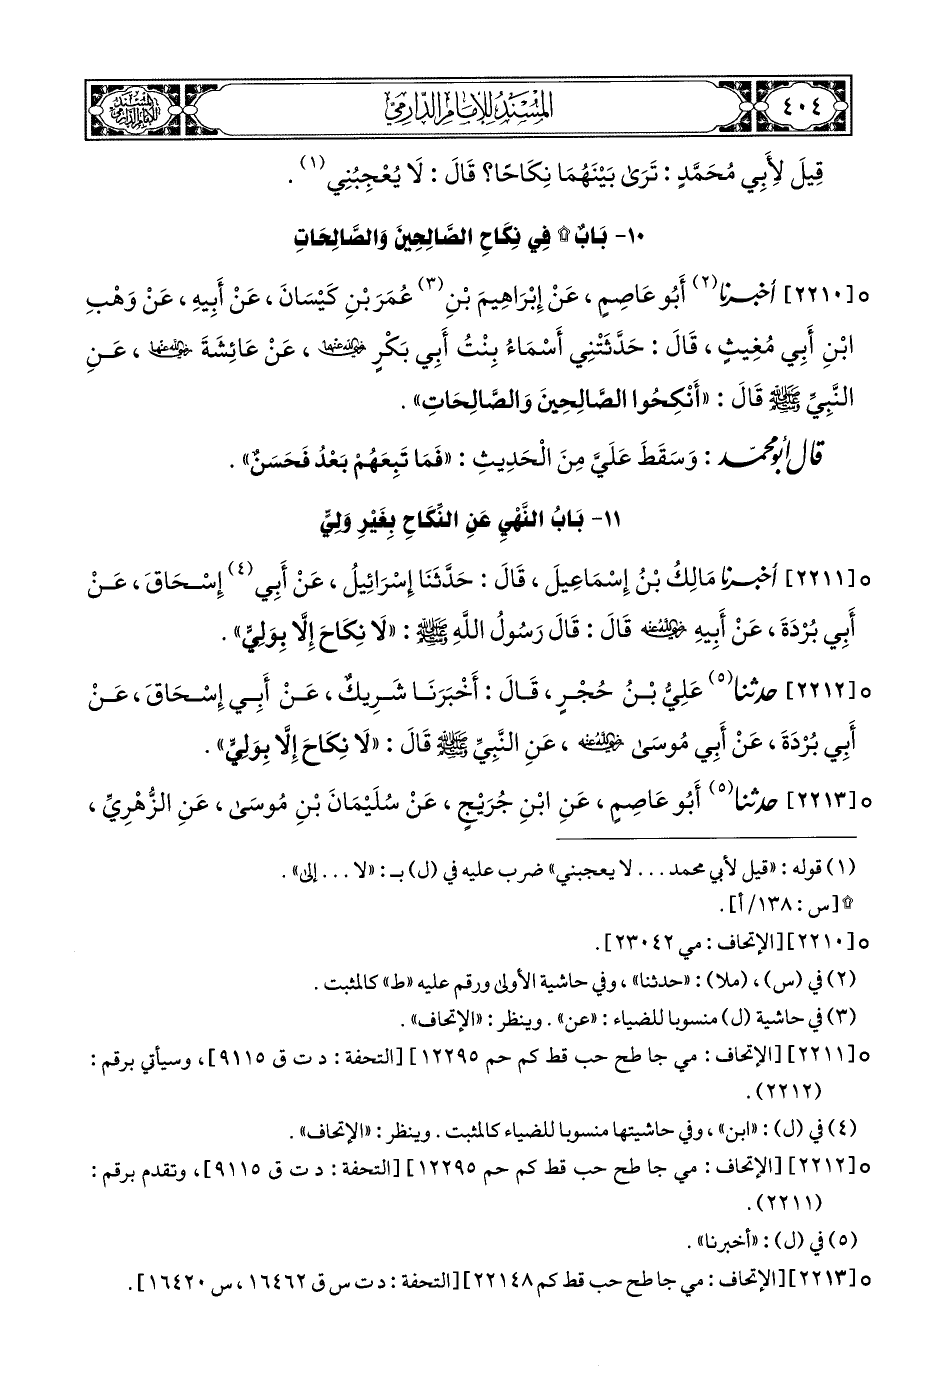 ٤٠٤
المسند للإمام الدارمي
المسند للإمام الدارمي
قِيلَ لِأَبِي مُحَمَّدٍ : تَرَىٰ بَيْنَهُمَا نِكَاحًا؟ قَالَ : لَا يُعْجِبُنِي (١) .
١٠- بَابٌ ۩ فِي نِكَاحِ الصَّالِحِينَ وَالصَّالِحَاتِ
٥ [٢٢١٠] أخبرنا (٢) أَبُو عَاصِمٍ ، عَنْ إِبْرَاهِيمَ بْنِ (٣) عُمَرَ بْنِ كَيْسَانَ ، عَنْ أَبِيهِ ، عَنْ وَهْبِ
ابْنِ أَبِي مُغِيثٍ ، قَالَ : حَدَّثَتْنِي أَسْمَاءُ بِنْتُ أَبِي بَكْرٍ رضي الله عنها ، عَنْ عَائِشَةَ رضي الله عنها ، عَنِ
النَّبِيِّ ﷺ قَالَ : «أَنْكِحُوا الصَّالِحِينَ وَالصَّالِحَاتِ» .
قال أبو محمد : وَسَقَطَ عَلَيَّ مِنَ الْحَدِيثِ : «فَمَا تَبِعَهُمْ بَعْدُ فَحَسَنٌ» .
١١- بَابُ النَّهْيِ عَنِ النِّكَاحِ بِغَيْرِ وَلِيٍّ
٥ [٢٢١١] أخبرنا مَالِكُ بْنُ إِسْمَاعِيلَ ، قَالَ : حَدَّثَنَا إِسْرَائِيلُ ، عَنْ أَبِي (٤) إِسْحَاقَ ، عَنْ
أَبِي بُرْدَةَ ، عَنْ أَبِيهِ رضي الله عنه قَالَ : قَالَ رَسُولُ اللَّهِ ﷺ : «لَا نِكَاحَ إِلَّا بِوَلِيٍّ» .
٥ [٢٢١٢] حدثنا (٥) عَلِيُّ بْنُ حُجْرٍ ، قَالَ : أَخْبَرَنَا شَرِيكٌ ، عَنْ أَبِي إِسْحَاقَ ، عَنْ
أَبِي بُرْدَةَ ، عَنْ أَبِي مُوسَىٰ رضي الله عنه ، عَنِ النَّبِيِّ ﷺ قَالَ : «لَا نِكَاحَ إِلَّا بِوَلِيٍّ» .
٥ [٢٢١٣] حدثنا (٥) أَبُو عَاصِمٍ ، عَنِ ابْنِ جُرَيْجٍ ، عَنْ سُلَيْمَانَ بْنِ مُوسَىٰ ، عَنِ الزُّهْرِيِّ ،
(١) قوله : «قيل لأبي محمد . . . لا يعجبني» ضرب عليه في (ل) بـ : «لا . . . إلى» .
۩ [س : ١٣٨/ أ] .
٥ [٢٢١٠] [الإتحاف : مي ٢٣٠٤٢] .
(٢) في (س) ، (ملا) : «حدثنا» ، وفي حاشية الأولى ورقم عليه «ط» كالمثبت .
(٣) في حاشية (ل) منسوبا للضياء : «عن» . وينظر : «الإتحاف» .
٥ [٢٢١١] [الإتحاف : مي جا طح حب قط كم حم ١٢٢٩٥] [التحفة : د ت ق ٩١١٥] ، وسيأتي برقم :
(٢٢١٢) .
(٤) في (ل) : «ابن» ، وفي حاشيتها منسوبا للضياء كالمثبت . وينظر : «الإتحاف» .
٥ [٢٢١٢] [الإتحاف : مي جا طح حب قط كم حم ١٢٢٩٥] [التحفة : د ت ق ٩١١٥] ، وتقدم برقم :
(٢٢١١) .
(٥) في (ل) : «أخبرنا» .
٥ [٢٢١٣] [الإتحاف : مي جا طح حب قط كم ٢٢١٤٨] [التحفة : د ت س ق ١٦٤٦٢ ، س ١٦٤٢٠] .